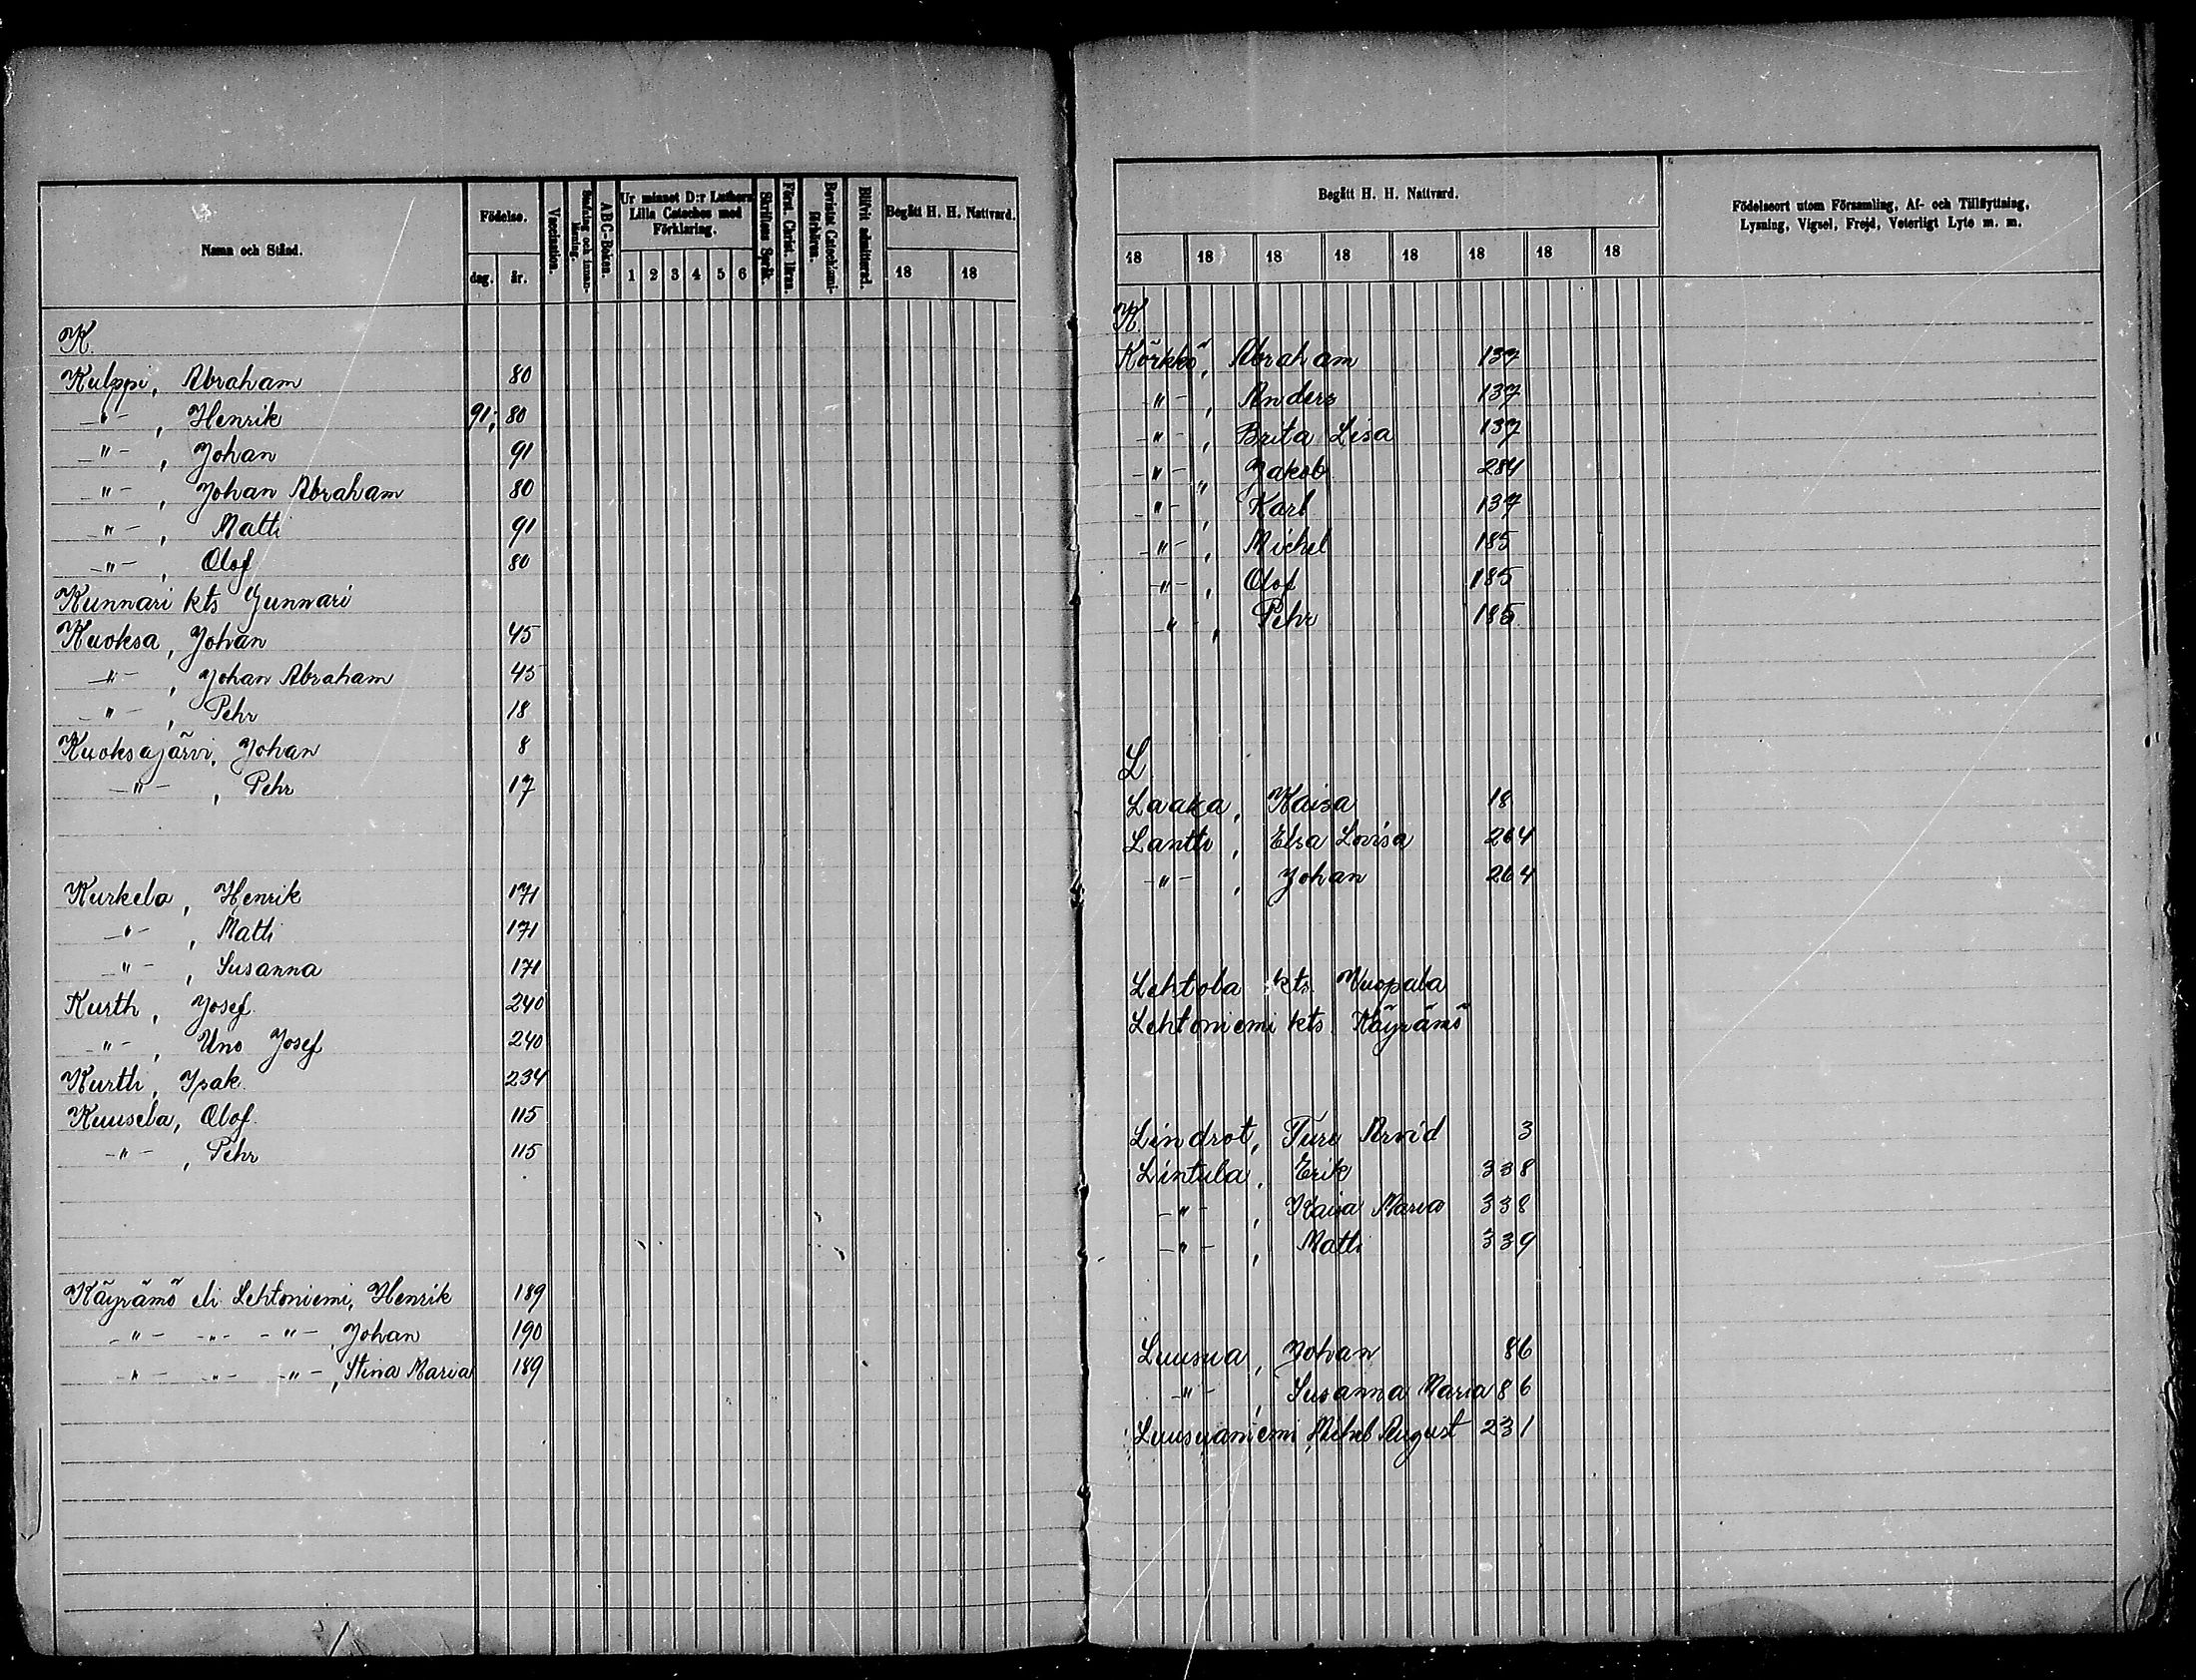 Namn och Stånd.
Födelse.
dag. år.
Vaccination.
ABC-Boken.
Ur minnet D:r Luthers Lilla Cateches med Förklaring.
1 2 3 4 5 6
Skriftens Språk.
Förest. Christ. läran.
Bevistat Catechismi-förhören.
Blifvit admitterad.
Begått H. H. Nattvard.
18 18
K.
Kulppi, Abraham 80
-"- , Henrik 91; 80
-"- , Johan 91
-"- , Johan Abraham 80
-"- , Matti 91
-"- , Olof 80
Kunnari kts Gunnari
Kuoksa, Johan 45
-"- , Johan Abraham 45
-"- , Pehr 18
Kuoksajärvi, Johan 8
-"- , Pehr 17
Kurkela, Henrik 171
-"- , Matti 171
-"- , Susanna 171
Kurth, Josef 240
-"- , Uno Josef 240
Kurtti, Isak 234
Kuusela, Olof 115
-"- , Pehr 115
Käyrämö eli Lehtoniemi, Henrik 189
-"- -"- -"- , Johan 190
-"- -"- -"- , Stina Maria 189
Begått H. H. Nattvard.
18 18 18 18 18 18 18 18
Födelseort utom Församling, Af- och Tillflyttning,
Lysning, Vigsel, Frejd, Veterligt Lyte m. m.
K.
Körkkö, Abraham 137
-"- , Anders 137
-"- , Brita Lisa 137
-"- , Jakob 284
-"- , Karl 137
-"- , Michel 185
-"- , Olof 185
-"- , Pehr 185
L
Laaka, Kaisa 18
Lantto, Elsa Lovisa 264
-"- , Johan 264
Lehtola kts. Vuopala
Lehtoniemi kts. Käyrämö
Lindrot, Ture Arvid 3
Lintula, Erik 338
-"- , Kaisa Maria 338
-"- , Matti 339
Luusua, Johan 86
-"- , Susanna Maria 86
Luusuaniemi, Michel August 231